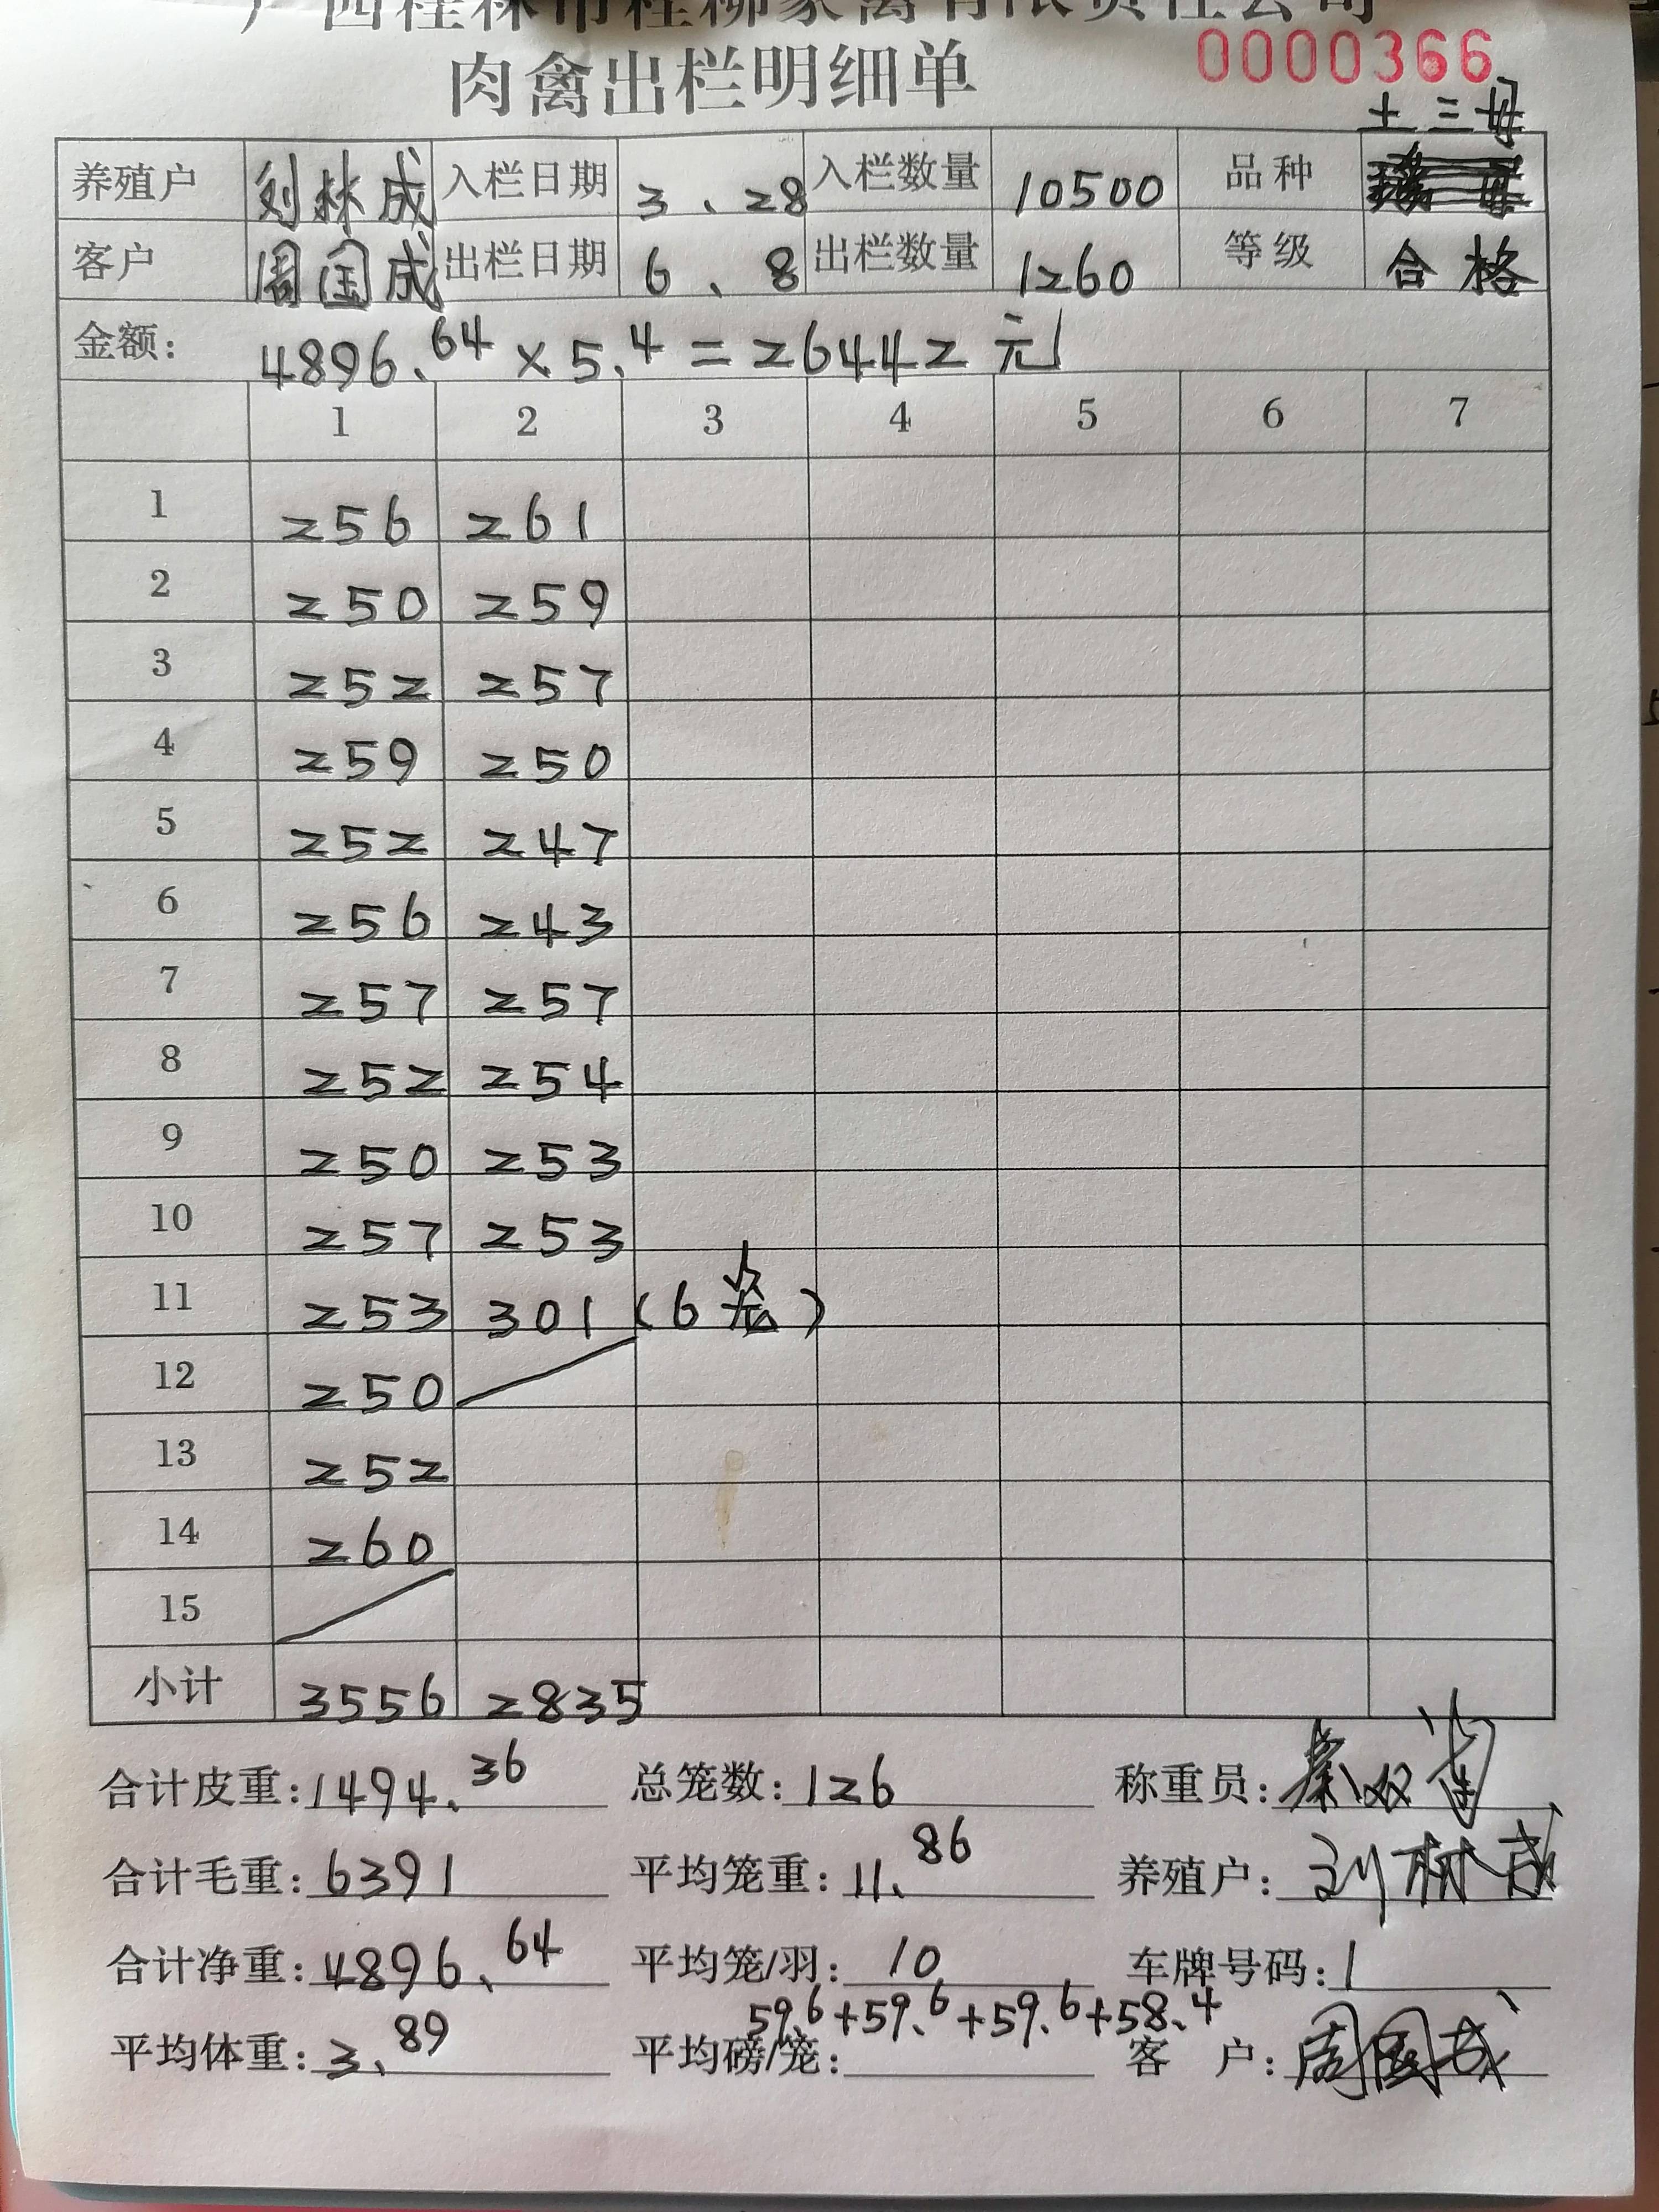 广西桂林市桂柳家禽有限责任公司
肉禽出栏明细单 0000366
土三母
养殖户 刘林成 入栏日期 3、28 入栏数量 10500 品种
客户 周国成 出栏日期 6、8 出栏数量 1260 等级 合格
金额: 4896.64×5.4=26442元
1 2 3 4 5 6 7
1 256 261
2 250 259
3 252 257
4 259 250
5 252 247
6 256 243
7 257 257
8 252 254
9 250 253
10 257 253
11 253 301(6笼)
12 250
13 252
14 260
15
小计 3556 2835
合计皮重:1494.36 总笼数:126 称重员:
合计毛重:6391 平均笼重:11.86 养殖户:刘林成
合计净重:4896.64 平均笼/羽:10 车牌号码:1
59.6+59.6+59.6+58.4
平均体重:3.89 平均磅/笼: 客 户:周国成